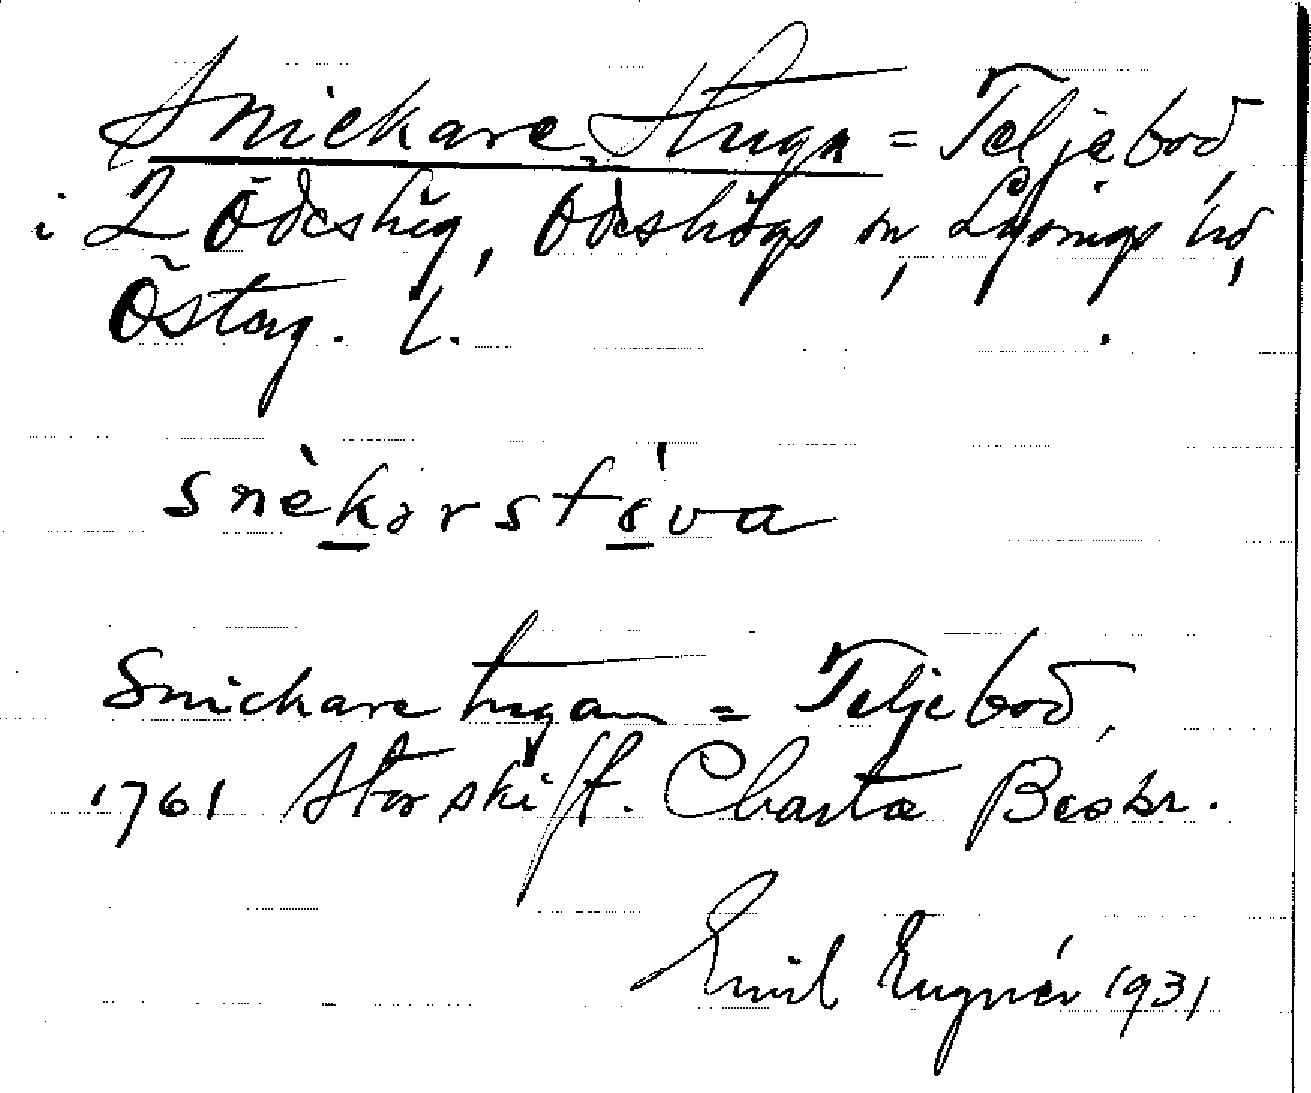 Snickare Stuga = Täljebod,
i L Ödeshög, Ödeshögs sn, Lysings hd,
Österg. l.
snèkarstéva
Snickare stugan = Täljebod,
1761 Storskift. Charta Beskr.
Emil Eugnér 1931